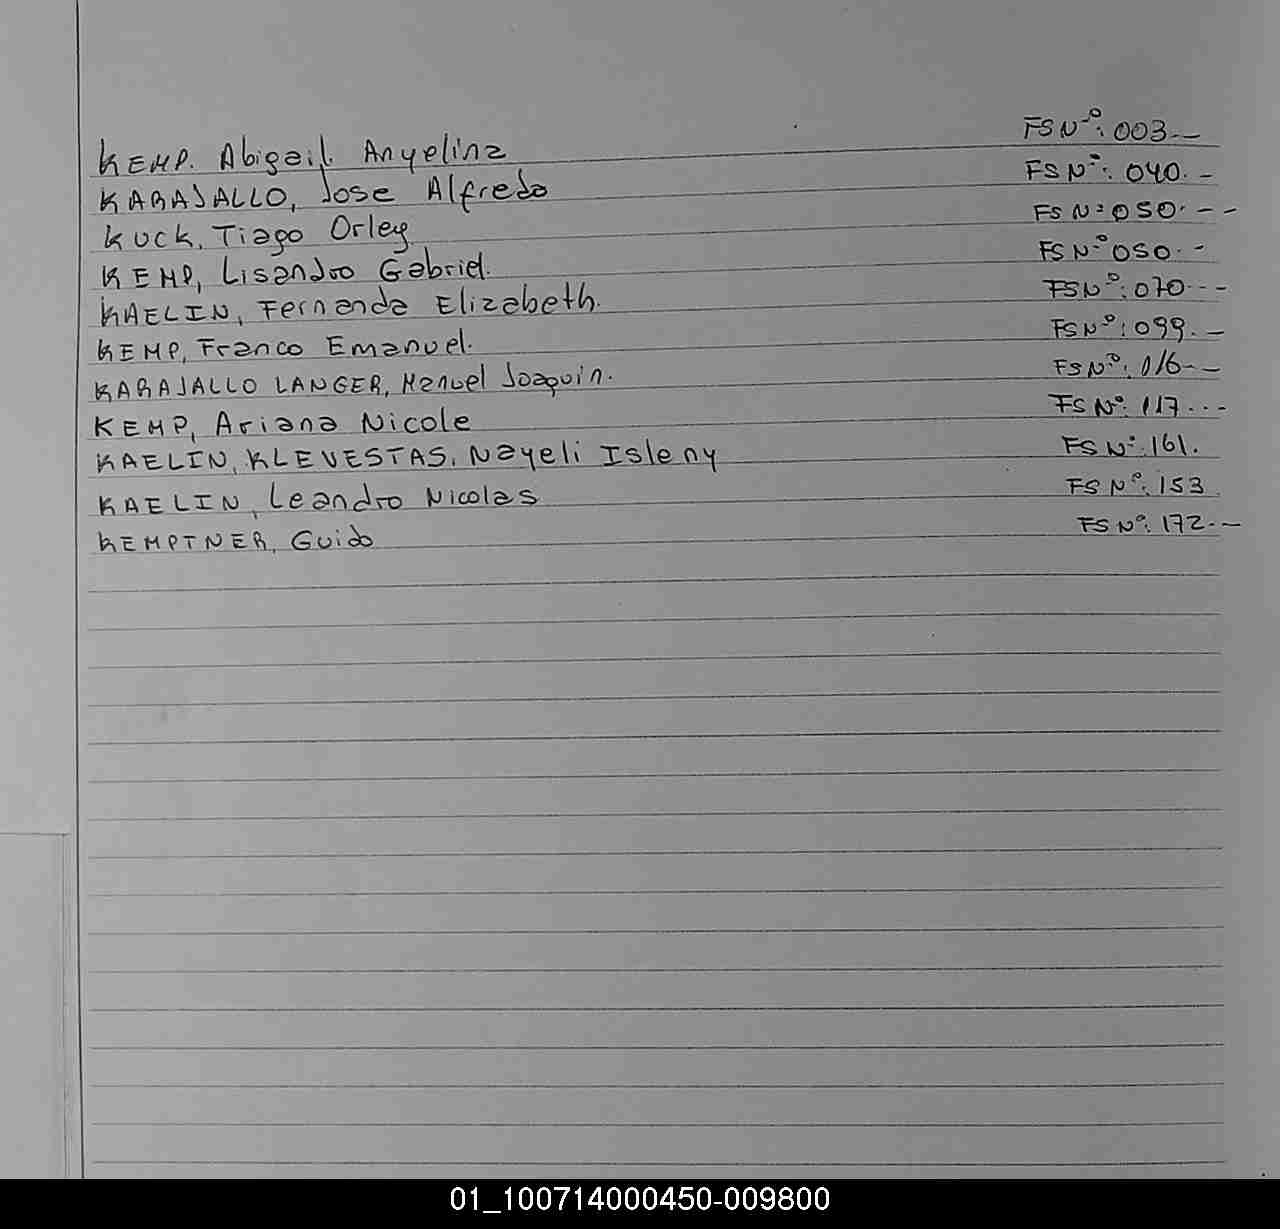 KEMP. Abigail. Anyelina FS Nº: 003.—
KARAJALLO, Jose Alfredo FS Nº: 040. —
KUCK, Tiago Orley FS Nº: 050. — —
KEMP, Lisandro Gabriel. FS Nº: 050. —
KAELIN, Fernanda Elizabeth. FS Nº: 070. — —
KEMP, Franco Emanuel. FS Nº: 099. —
KARAJALLO LANGER, Manuel Joaquin. FS Nº: 016 — —
KEMP, Ariana Nicole FS Nº: 117. — —
KAELIN, KLEVESTAS, Nayeli Isleny FS Nº: 161.
KAELIN, Leandro Nicolas FS Nº: 153
KEMPTNER, Guido FS Nº: 172. — —
01_100714000450-009800